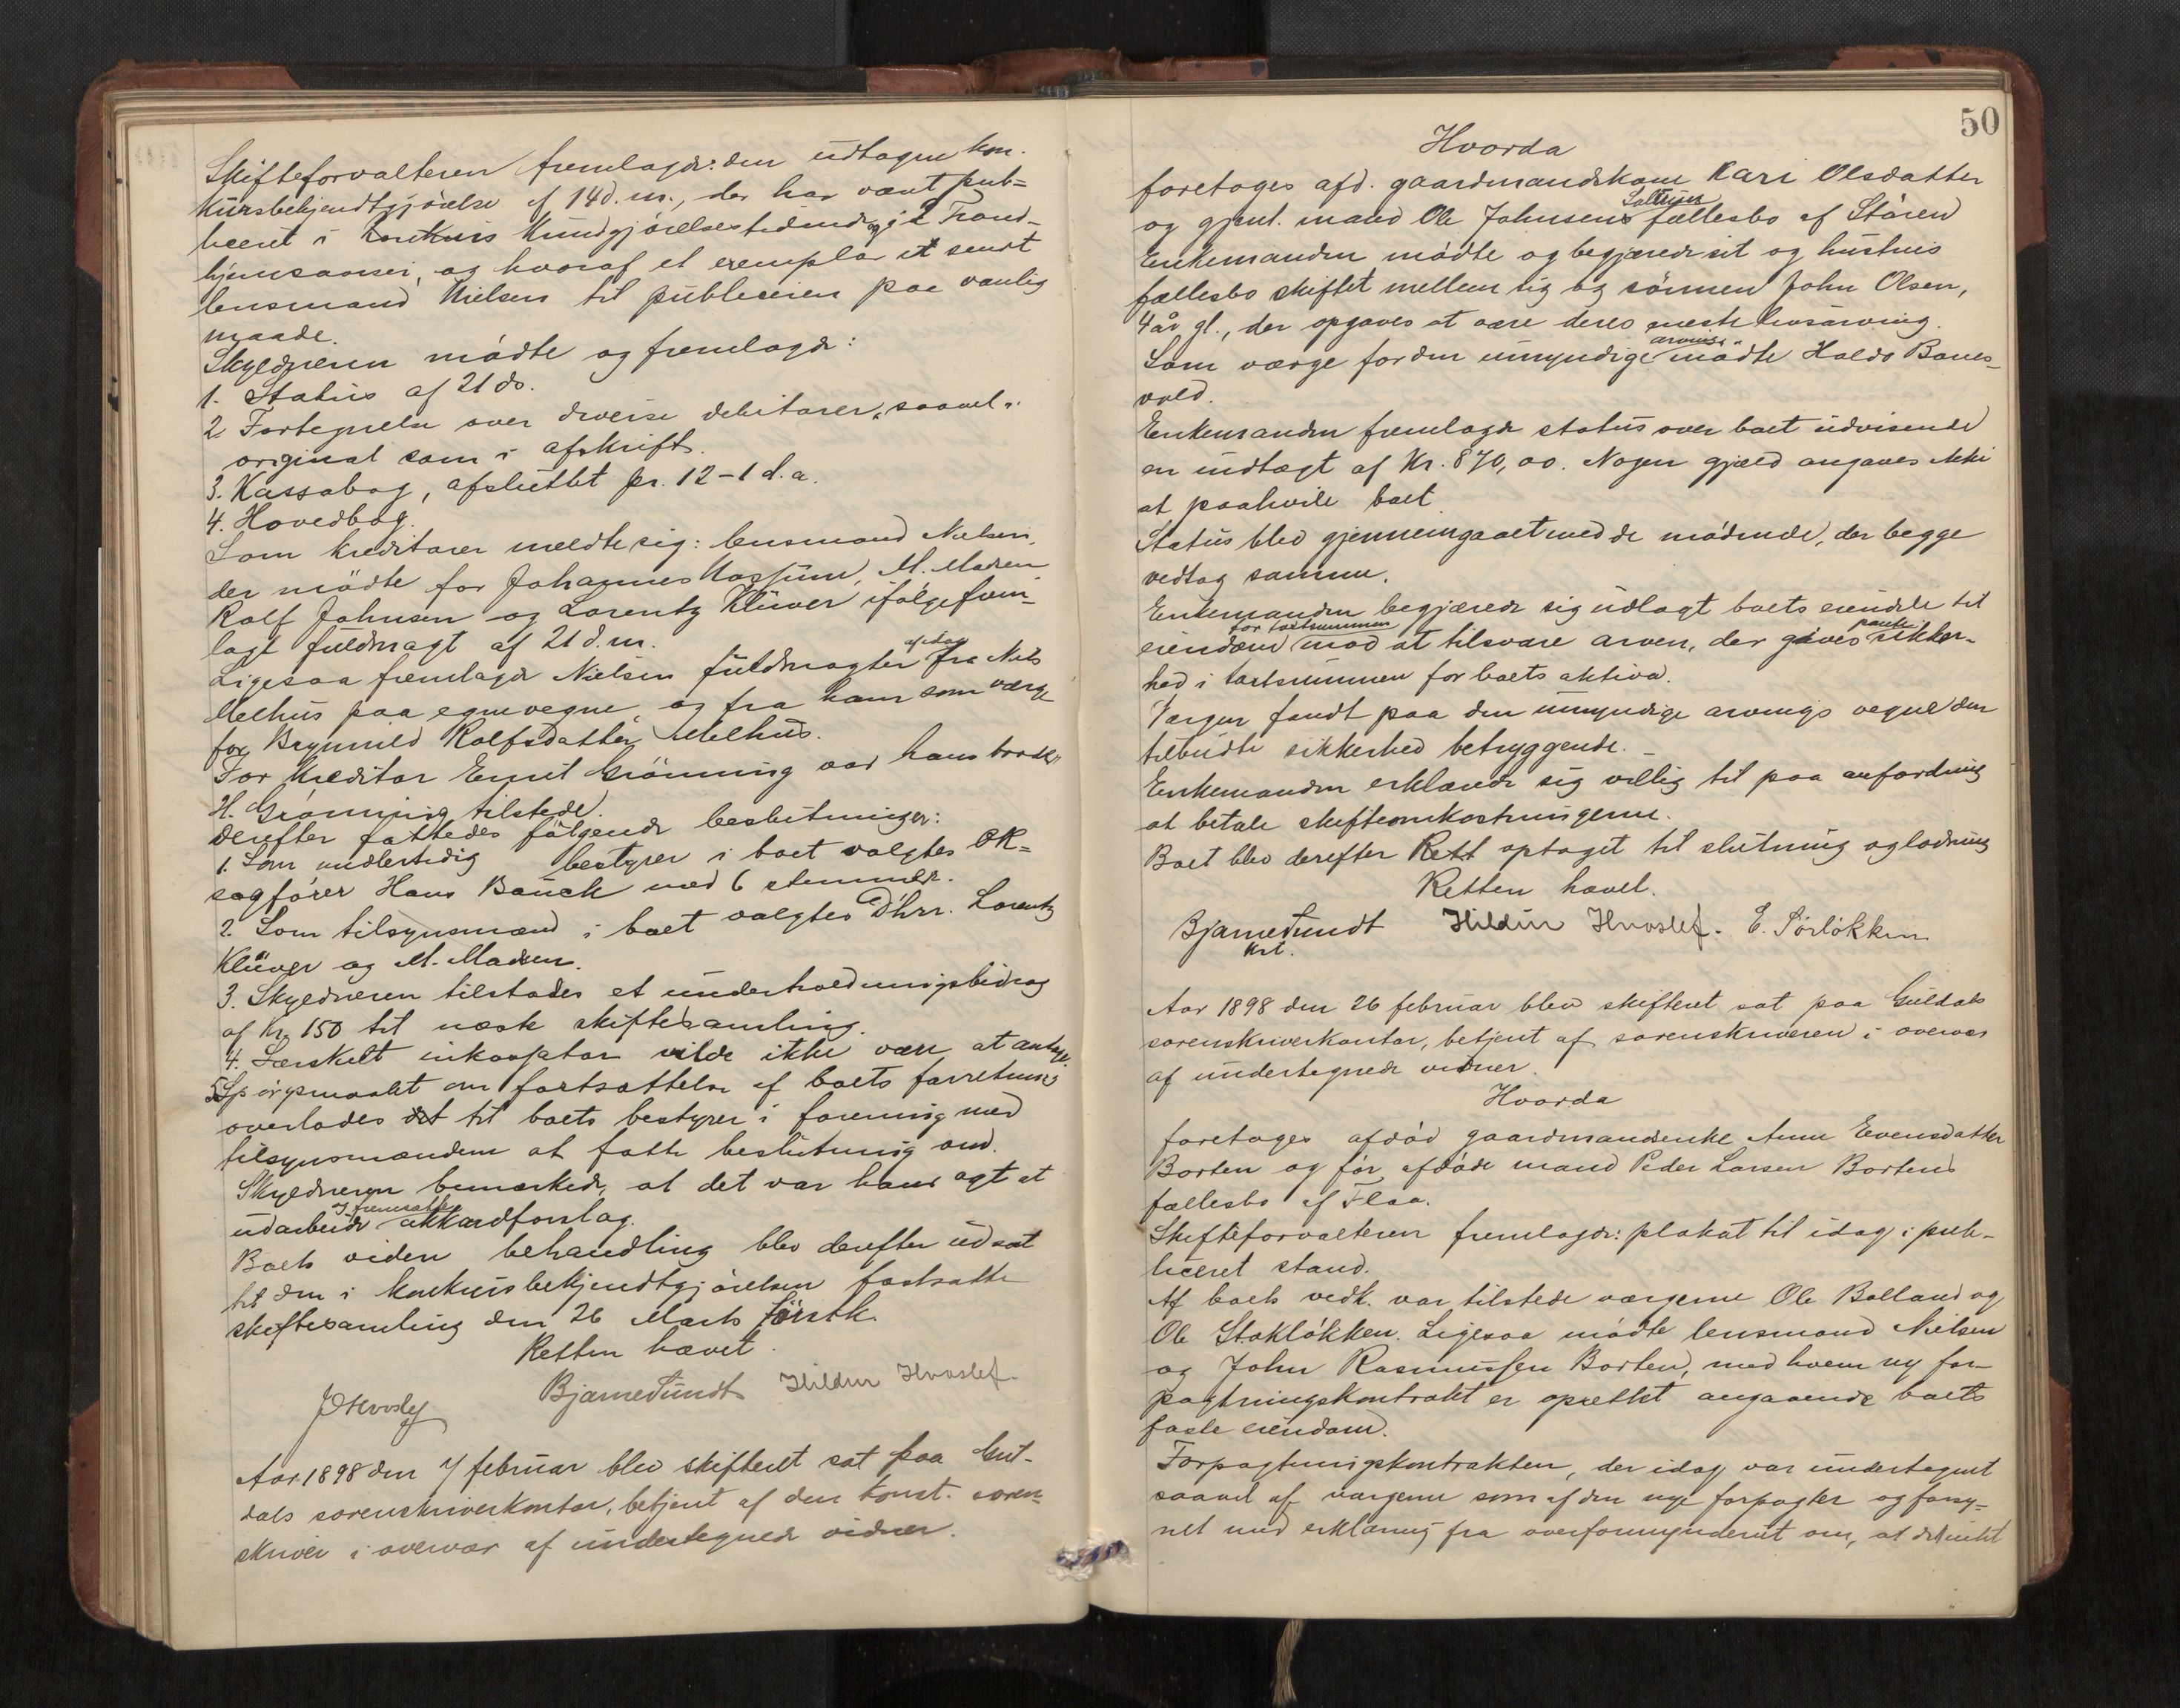 Skifteforvalteren fremlagde: den udtagne kon-
kursbekjendtgjörelse af 14 d. m., der har været pub-
liceret i Konkurs Kundgjörelsestidende og i Trond-
hjemsavisei, og hvoraf et exemplar et sendt
lensmand Nielsen til publiceren paa vanlig
maade.
Skyldneren mödte og fremlagde:
1. Status af 21 ds.
2. Fortegnelse over diverse debitorer, saavel i
original som i afskrift.
3. Kassabog, afsluttet pr. 12-1 d. a.
4. Hovedbog.
Som kreditorer meldte sig: lensmand Nielsen,
der mödte for Johannes Mossum, M. Madsen
Rolf Johnsen og Lorentz Klüver ifölge frem-
lagt fuldmagt af 21 d. m.
Ligesaa fremlagde Nielsen fuldmagter af idag fra Nils
Melhus paa egne vegne og fra ham som værge
for Brynnild Rolfsdatter Melhus.
For kreditor Emil Grönning var hans broder
H. Grönning tilstede.
Derefter fattedes fölgende beslutninger:
1. Som midlertidig bestyrer i boet valgtes OR-
sagförer Hans Bauck med 6 stemmer.
2. Som tilsynsmænd i boet valgtes Dhrr. Lorentz
Klüver og M. Madsen.
3. Skyldneren tilstodes et underholdningsbidrag
af Kr 150 til næste skiftesamling.
4. Særskilt inkassator vilde ikke være at antage.
5. Spörgsmaalet om fortsættelse af boets forretning
overlodes det til boets bestyrer i forening med
tilsynsmændene at fatte beslutning om.
Skyldneren bemærkede, at det var hans agt at
udarbeide og fremsætte akkordforslag.
Boets videre behandling blev derefter udsat
til den i konkursbekjendtgjörelsen fastsatte
skiftesamling den 26 Marts förstk.
Retten hævet.
JHvoslef Bjarne Sundt Hildur Hvoslef.
Aar 1898 den 7 februar blev skifteret sat paa Gul-
dals sorenskriverkontor, betjent af den konst. soren-
skriver i overvær af undertegnede vidner.
50
Hvorda
foretoges afd. gaardmandskone Kari Olsdatter
og gjenl. mand Ole Johnsens fællesbo af Stören
Enkemanden mödte og begjærede sit og hustrus
fællesbo skiftet mellem sig og sönnen John Olsen,
4 år gl., der opgaves at være deres eneste livsarving.
Som værge for den umyndige arving mödte Haldo Banes-
vold.
Enkemanden fremlagde status over boet udvisende
en indtægt af Kr. 870,00. Nogen gjæld angaves ikke
at paahvile boet.
Status blev gjennemgaaet med de mödende, der begge
vedtog samme.
Enkemanden begjærede sig udlagt boets eiendele til
eiendom for taxtsummen mod at tilsvare arven, der gives pante sikker-
hed i taxtsummen for boets aktiva.
Værgen fandt paa den umyndige arvings vegne den
tilbudte sikkerhed betryggende.
Enkemanden erklærede sig villig til paa anfordring
at betale skifteomkostningerne.
Boet blev derefter Rett optaget til slutning og lodning
Retten hævet.
Bjarne Sundt Hildur Hvoslef. E. Sörlökken
kst.
Aar 1898 den 26 februar blev skifteret sat paa Guldals
sorenskriverkontor, betjent af sorenskriveren i overvær
af undertegnede vidner.
Hvorda
foretoges afdöd gaardmandsenke Anne Evensdatter
Borten og för afdöde mand Peder Larsen Bortens
fællesbo af Flaa.
Skifteforvalteren fremlagde: plakat til idag i pub-
liceret stand.
Af boets vedk. var tilstede værgerne Ole Bolland og
Ole Stoklökken. Ligesaa mödte lensmand Nielsen
og John Rasmussen Borten, med hvem ny for-
pagtningskontrakt er oprettet angaaende boets
faste eiendom.
Forpagtningskontrakten, der idag var undertegnet
saavel af værgerne som af den nye forpagter og forsy-
net med erklæring fra overformynderiet om, at det intet